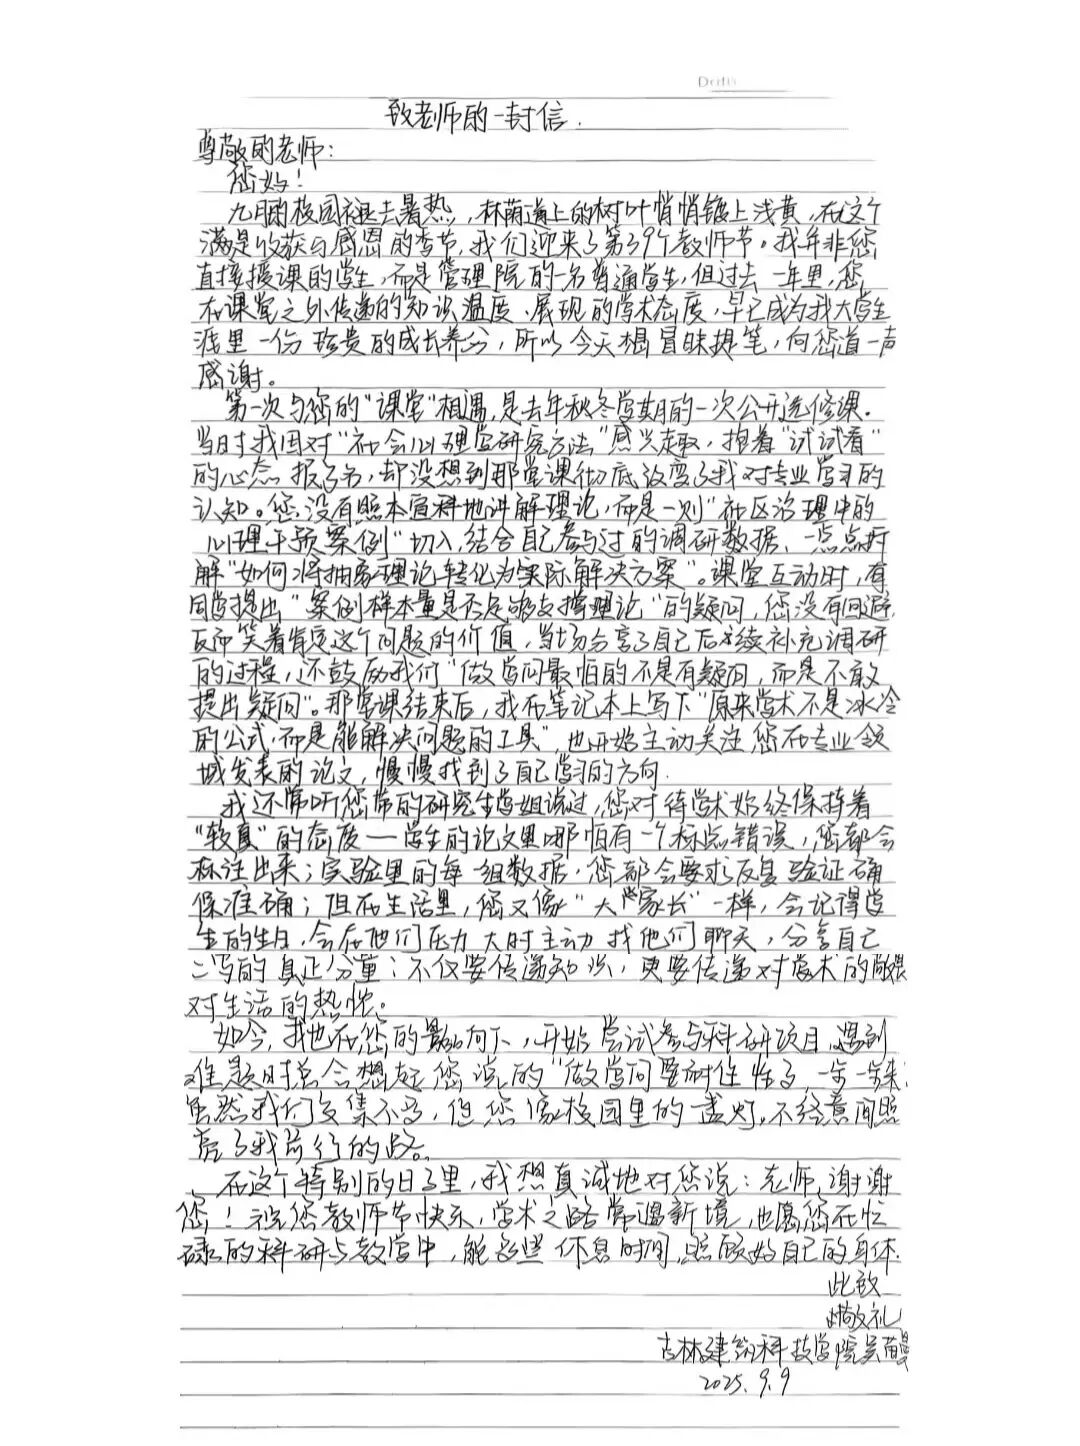 致老师的一封信.
尊敬的老师：
您好！
九月的校园褪去暑热，林荫道上的树叶悄悄镀上浅黄，在这个
满是收获与感恩的季节，我们迎来了第39个教师节。我并非您
直接授课的学生，而是管理院的一名普通学生，但过去一年里，您
在课堂之外传递的知识温度、展现的学术态度，早已成为我大学生
涯里一份珍贵的成长养分，所以今天想冒昧提笔，向您道一声
感谢。
第一次与您的“课堂”相遇，是去年秋冬学期的一次公开选修课.
当时我因对“社会心理学研究方法”感兴趣，抱着“试试看”
的心态报了名，却没想到那堂课彻底改变了我对专业学习的
认知。您没有照本宣科地讲解理论，而是一则“社区治理中的
心理干预案例”切入，结合自己参与过的调研数据、一点点拆
解“如何将抽象理论转化为实际解决方案”。课堂互动时，有
同学提出“案例样本量是否足够支撑理论”的疑问，您没有回避，
反而笑着肯定这个问题的价值，当场分享了自己后续补充调研
的过程，还鼓励我们“做学问最怕的不是有疑问，而是不敢
提出疑问”。那堂课结束后，我在笔记本上写下“原来学术不是冰冷
的公式，而是能解决问题的工具”，也开始主动关注您在专业领
域发表的论文，慢慢找到了自己学习的方向.
我还常听您带的研究生学姐说过，您对待学术始终保持着
“较真”的态度——学生的论文里哪怕有一个标点错误，您都会
标注出来；实验里的每一组数据，您都会要求反复验证确
保准确；但在生活里，您又像“大家长”一样，会记得学
生的生日，会在他们压力大时主动找他们聊天，分享自己
的真正分量：不仅要传递知识，更要传递对学术的敬畏
对生活的热忱。
如今，我也在您的影响下，开始尝试参与科研项目，遇到
难题时总会想起您说的“做学问要耐住性子，一步一步来
虽然我们交集不多，但您像校园里的一盏灯，不经意间照
亮了我前行的路。
在这个特别的日子里，我想真诚地对您说：老师，谢谢
您！祝您教师节快乐，学术之路常遇新境，也愿您在忙
碌的科研与教学中，能多些休息时间，照顾好自己的身体.
此致
敬礼
吉林建筑科技学院吴蔓
2025.9.9